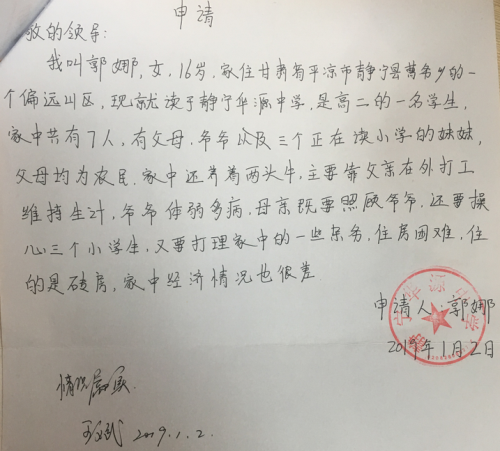 申请
敬的领导:
我叫郭娜,女,16岁,家住甘肃省平凉市静宁县 乡的一
个偏远山区,现就读于静宁华源中学,是高二的一名学生,
家中共有7人,有父母、爷爷以及三个正在读小学的妹妹,
父母均为农民,家中还养着两头牛,主要靠父亲在外打工
维持生计,爷爷体弱多病,母亲既要照顾爷爷,还要操
心三个小学生,又要打理家中的一些杂务,住房困难,住
的是砖房,家中经济情况也很差
申请人:郭娜
2019年1月2日
情况属实
2019.1.2.